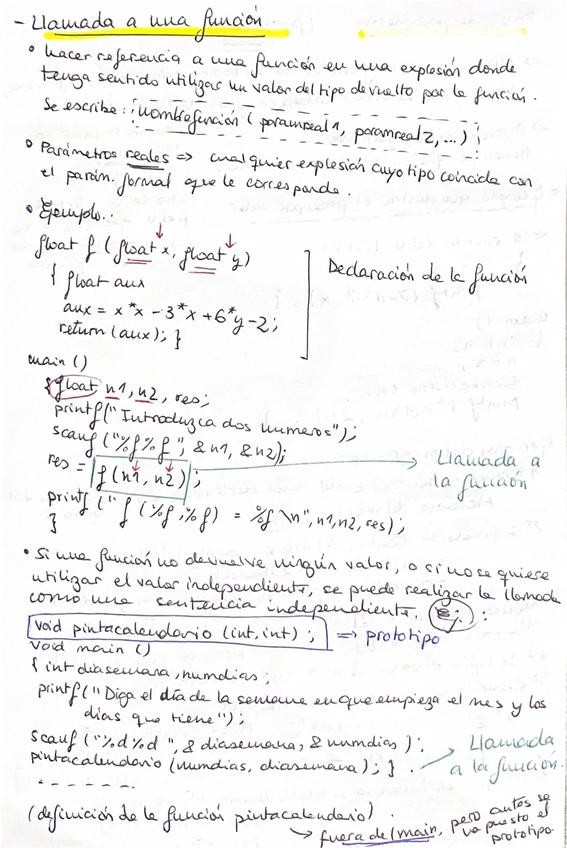 - Llamada a una función
• hacer referencia a una función en una explosión donde
tenga sentido utilizar un valor del tipo devuelto por la función.
Se escribe: nombrefunción (paramreal1, paramreal2, ...);
• Parámetros reales => cualquier explosión cuyo tipo coincida con
el parám. formal que le corresponde.
• Ejemplo..
float f (float x, float y)
{ float aux
aux = x*x - 3*x + 6*y - 2;
return (aux); }
Declaración de la función
main ()
{ float n1, n2, res;
printf("Introduzca dos numeros");
scanf ("%f%f", &n1, &n2);
res = f(n1, n2);
Llamada a
la función
printf (" f (%f,%f) = %f \n", n1, n2, res);
}
• Si una función no devuelve ningún valor, o si no se quiere
utilizar el valor independiente, se puede realizar la llamada
como una sentencia independiente. :
void pintacalendario (int, int); => prototipo
void main ()
{ int diasemana, numdias;
printf("Diga el día de la semana en que empieza el mes y los
días que tiene");
scanf ("%d%d ", & diasemana, & numdias );
pintacalendario (numdias, diasemana); } .
Llamada
a la función.
- - - - - -.
(definición de la función pintacalendario)
fuera de (main, pero antes se
va puesto el
prototipo.